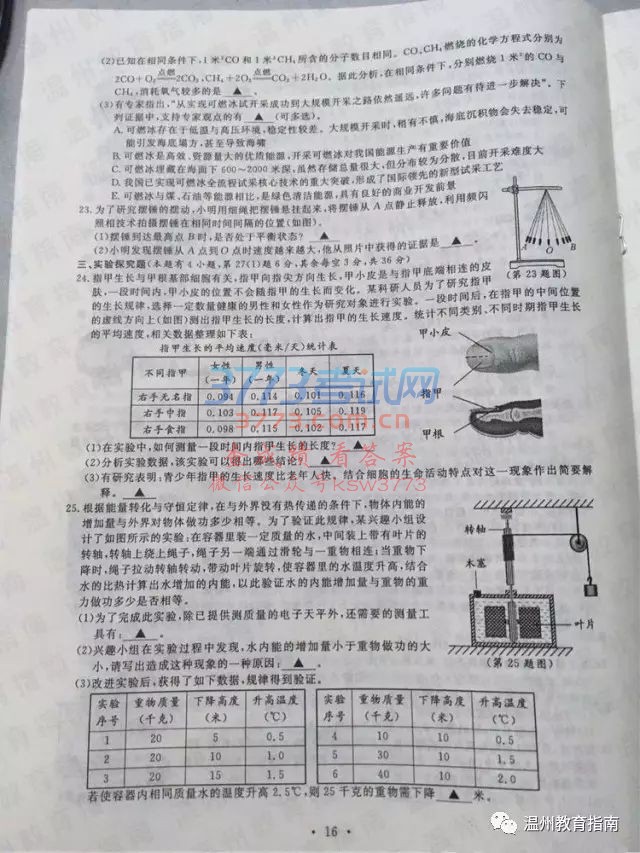 (2)已知在相同条件下,1米³CO和1米³CH₄所含的分子数目相同。CO、CH₄燃烧的化学方程式分别为
2CO+O₂ 点燃 2CO₂、CH₄+2O₂ 点燃 CO₂+2H₂O。据此分析,在相同条件下,分别燃烧1米³的CO与
CH₄,消耗氧气较多的是 ▲ 。
(3)有专家指出,“从实现可燃冰试开采成功到大规模开采之路依然遥远,许多问题有待进一步解决”。下
列证据中,支持专家观点的有 ▲ (可多选)。
A.可燃冰存在于低温与高压环境,稳定性较差。大规模开采时,稍有不慎,海底沉积物会失去稳定,可
能引发海底塌方,甚至导致海啸
B.可燃冰是高效、资源量大的优质能源,开采可燃冰对我国能源生产有重要价值
C.可燃冰埋藏在海面下600~2000米深,虽然存储总量很大,但分布较为分散,目前开采难度大
D.我国已实现可燃冰全流程试采核心技术的重大突破,形成了国际领先的新型试采工艺
E.可燃冰与煤、石油等能源相比,是绿色清洁能源,具有良好的商业开发前景
23.为了研究摆锤的摆动,小明用细绳把摆锤悬挂起来,将摆锤从A点静止释放,利用频闪
照相技术拍摄摆锤在相同时间间隔的位置(如图)。
(1)摆锤到达最高点B时,是否处于平衡状态? ▲
(2)小明发现摆锤从A点到O点时速度越来越大,他从照片中获得的证据是 ▲ 。
A O B
(第23题图)
三、实验探究题(本题有4小题,第27(1)题6分,其余每空3分,共36分)
24.指甲生长与甲根基部细胞有关,指甲向指尖方向生长,甲小皮是与指甲底端相连的皮
肤,一段时间内,甲小皮的位置不会随指甲的生长而变化。某科研人员为了研究指甲
的生长规律,选择一定数量健康的男性和女性作为研究对象进行实验。一段时间后,在指甲的中间位置
的虚线方向上(如图)测出指甲生长的长度,计算出指甲的生长速度。统计不同类别、不同时期指甲生长
的平均速度,相关数据整理如下表:
指甲生长的平均速度(毫米/天)统计表
不同指甲 女性(一年) 男性(一年) 冬天 夏天
右手无名指 0.094 0.114 0.101 0.116
右手中指 0.103 0.117 0.105 0.119
右手食指 0.098 0.115 0.102 0.117
甲小皮
指甲
甲根
(1)在实验中,如何测量一段时间内指甲生长的长度? ▲
(2)分析实验数据,该实验可以得出哪些结论? ▲
(3)有研究表明:青少年指甲的生长速度比老年人快。结合细胞的生命活动特点对这一现象作出简要解
释。 ▲
25.根据能量转化与守恒定律,在与外界没有热传递的条件下,物体内能的
增加量与外界对物体做功多少相等。为了验证此规律,某兴趣小组设
计了如图所示的实验:在容器里装一定质量的水,中间装上带有叶片的
转轴,转轴上绕上绳子,绳子另一端通过滑轮与一重物相连;当重物下
降时,绳子拉动转轴转动,带动叶片旋转,使容器里的水温度升高,结合
水的比热计算出水增加的内能,以此验证水的内能增加量与重物的重
力做功多少是否相等。
(1)为了完成此实验,除已提供测质量的电子天平外,还需要的测量工
具有: ▲ 。
(2)兴趣小组在实验过程中发现,水内能的增加量小于重物做功的大
小,请写出造成这种现象的一种原因: ▲ 。
转轴
木塞
叶片
(第25题图)
(3)改进实验后,获得了如下数据,规律得到验证。
实验序号 重物质量(千克) 下降高度(米) 升高温度(℃)
1 20 5 0.5
2 20 10 1.0
3 20 15 1.5
实验序号 重物质量(千克) 下降高度(米) 升高温度(℃)
4 10 10 0.5
5 30 10 1.5
6 40 10 2.0
若使容器内相同质量水的温度升高2.5℃,则25千克的重物需下降 ▲ 米。
·16·
3773考试网
3773.com.cn
看答案
微信公众号ksw3773
温州教育指南